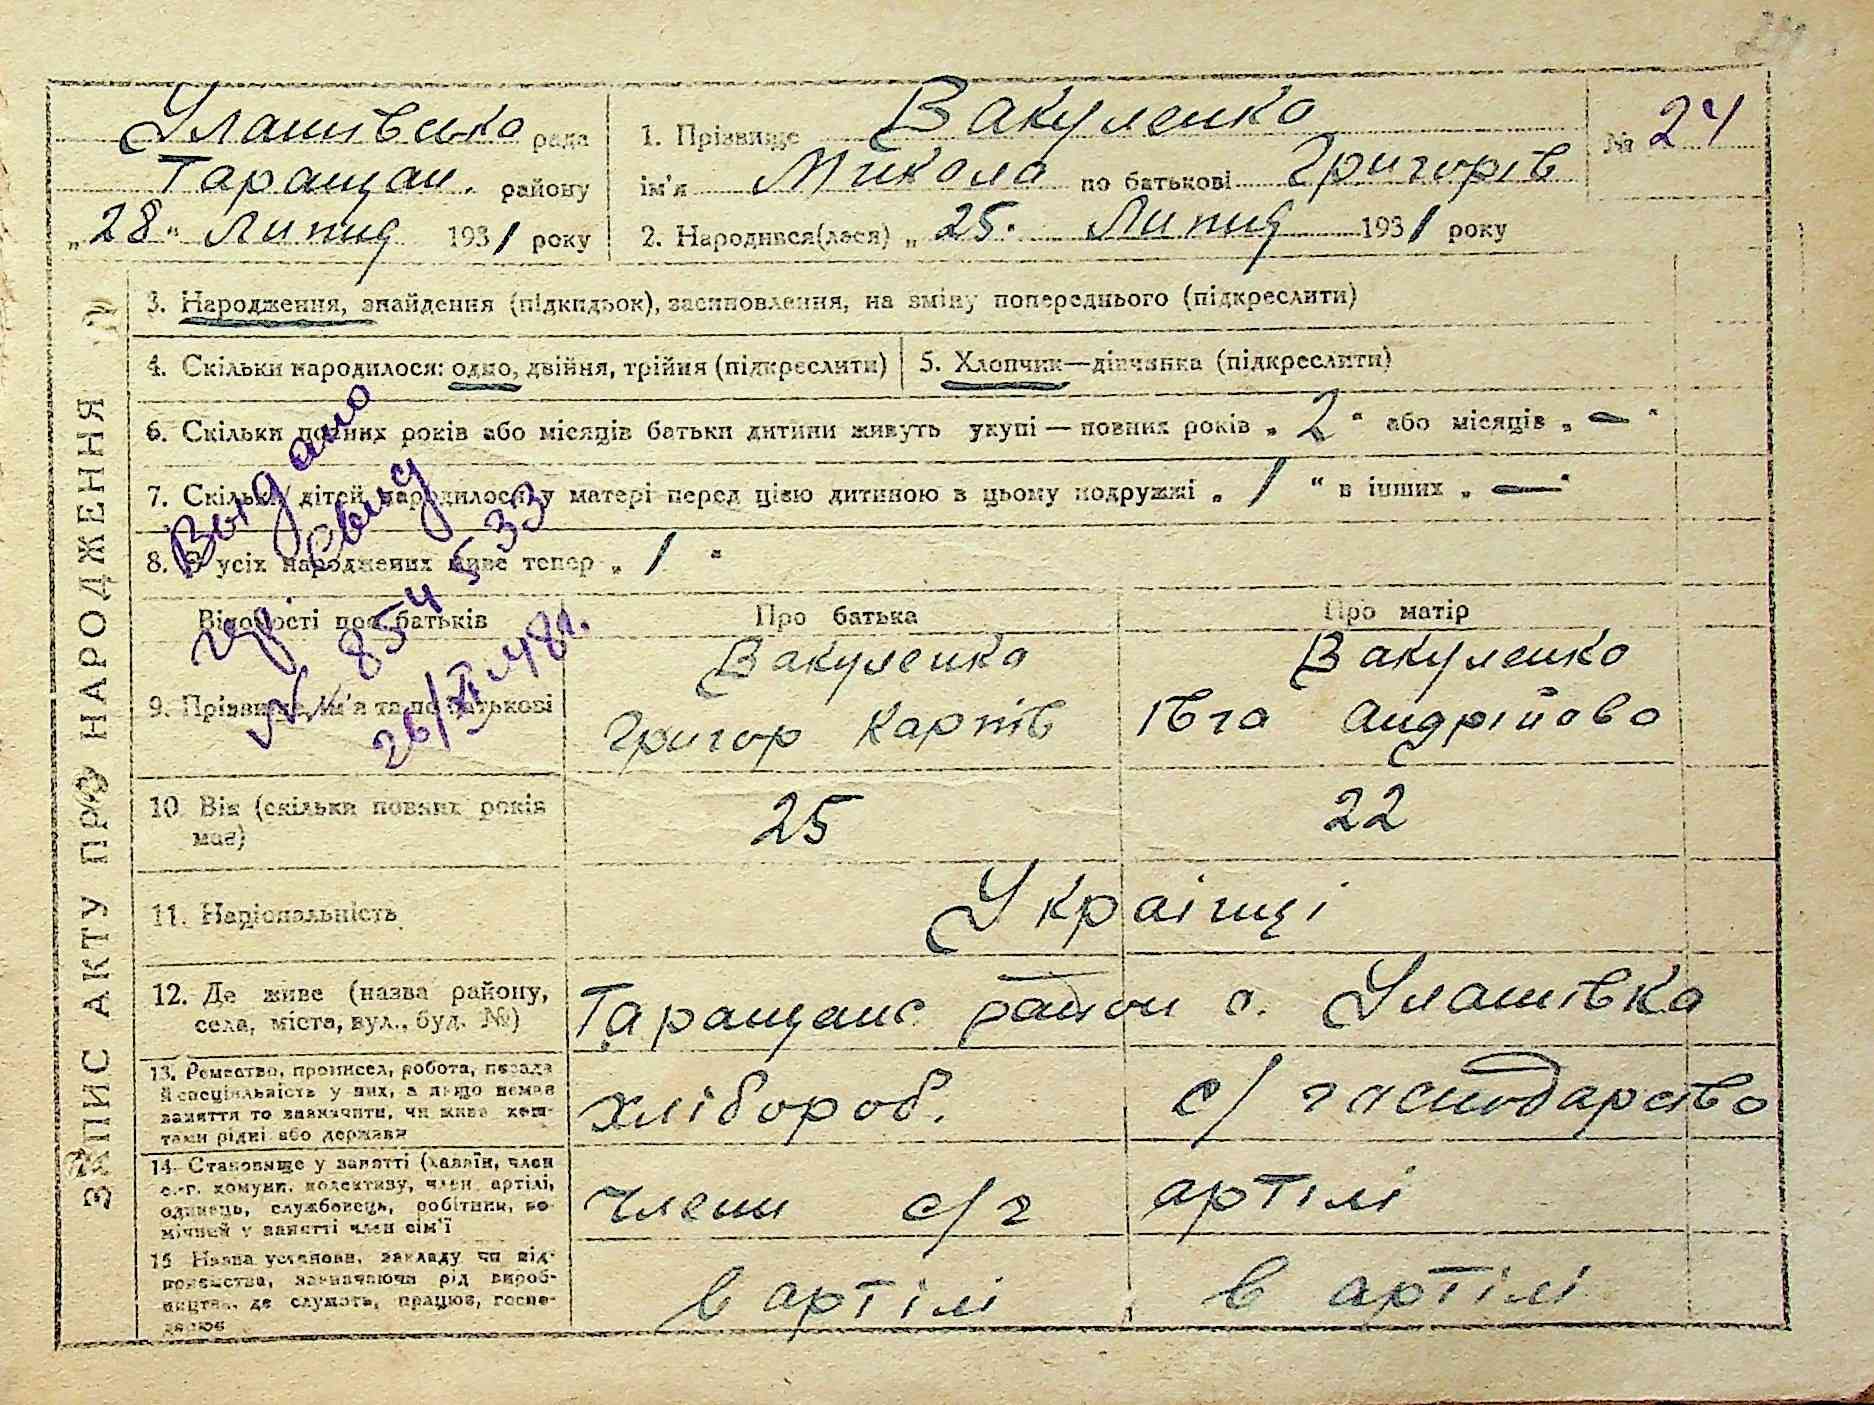 Улашівсько рада
Таращан. району
„28" Липня 1931 року
1. Прізвище Вакуленко
ім'я Микола по батькові Григорів
2. Народився(лася) „25. Липня 1931 року
№ 24
ЗАПИС АКТУ ПРО НАРОДЖЕННЯ
3. Народження, знайдення (підкидьок), засиновлення, на зміну попереднього (підкреслити)
4. Скільки народилося: одно, двійня, трійня (підкреслити)
5. Хлопчик—дівчинка (підкреслити)
6. Скільки повних років або місяців батьки дитини живуть укупі — повних років „2" або місяців „—"
7. Скільки дітей народилося у матері перед цією дитиною в цьому подружжі „1" в інших „—"
8. З усіх народжених живе тепер „1"
Выдано
свид
№ 8545533
26/XI 48г.
Відомості про батьків
Про батька
Про матір
9. Прізвище, ім'я та по батькові
Вакуленко
Григор Карпів
Вакуленко
Івга Андрійова
10. Вік (скільки повних років
має)
25
22
11. Національність
Українці
12. Де живе (назва району,
села, міста, вул., буд. №)
Таращанс район с. Улашівка
13. Ремество, промисел, робота, посада
й спеціяльність у них, а якщо немає
заняття то зазначити, чи живе кош-
тами рідні або держави
хлібороб.
с/господарство
14. Становище у занятті (хазяїн, член
с.-г. комуни, колективу, член артілі,
одинець, службовець, робітник, по-
мічний у занятті член сім'ї
члени с/г артілі
15 Назва установи, закладу чи під-
приємства, зазначаючи рід вироб-
ництва, де служить, працює, госпо-
дарює
в артілі
в артілі